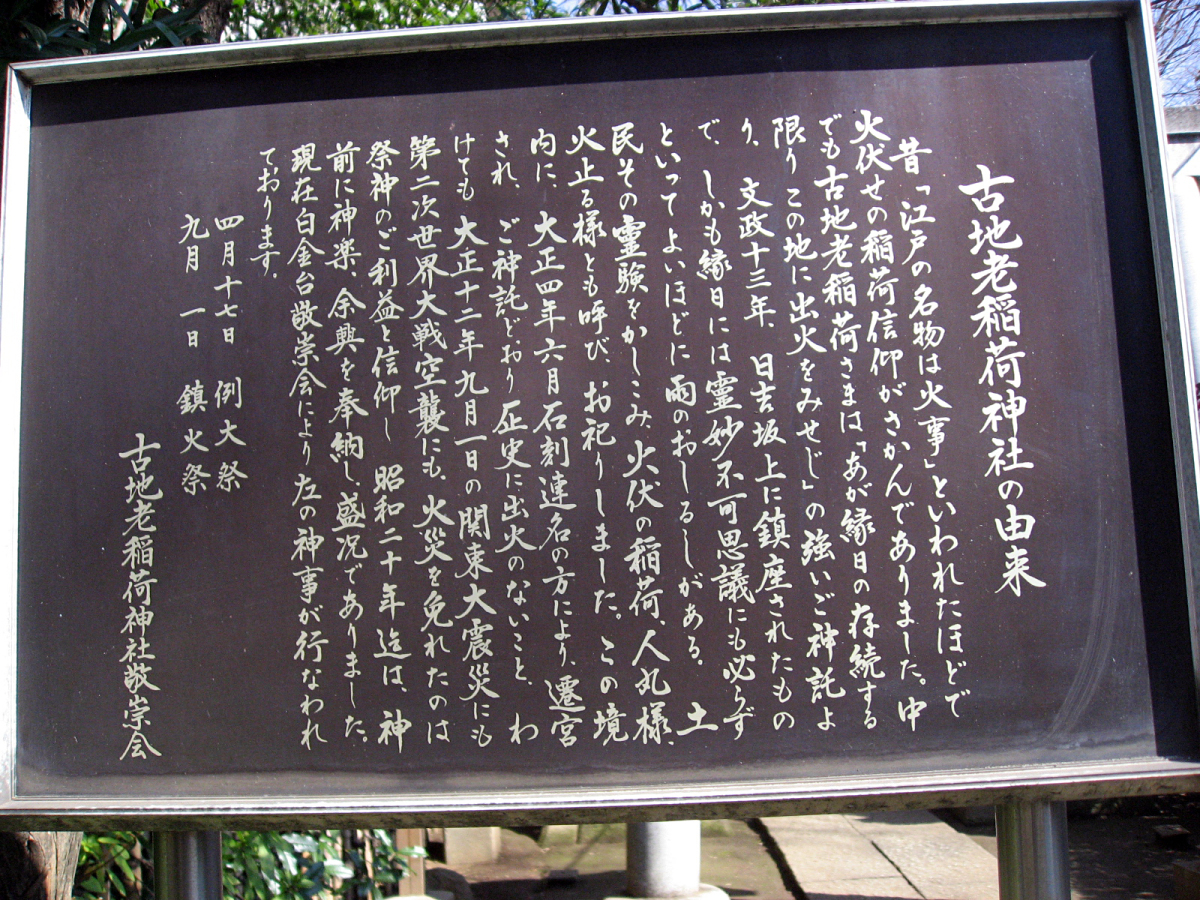 古地老稲荷神社の由来
昔「江戸の名物は火事」といわれたほどで
火伏せの稲荷信仰がさかんでありました。中
でも古地老稲荷さまは「あが縁日の存続する
限りこの地に出火をみせじ」の強いご神託よ
り、文政十三年、日吉坂上に鎮座されたもの
で、しかも縁日には霊妙不可思議にも必らず
といってよいほどに雨のおしるしがある。土
民その霊験をかしこみ、火伏の稲荷、人丸様、
火止る様とも呼び、お祀りしました。この境
内に、大正四年六月石刻連名の方により、遷宮
され、ご神託どおり歴史に出火のないこと、わ
けても大正十二年九月一日の関東大震災にも
第二次世界大戦空襲にも、火災を免れたのは
祭神のご利益と信仰し 昭和二十年迄は、神
前に神楽、余興を奉納し、盛況でありました。
現在白金台敬崇会により左の神事が行なわれ
ております。
四月十七日 例大祭
九月 一日 鎮火祭
古地老稲荷神社敬崇会